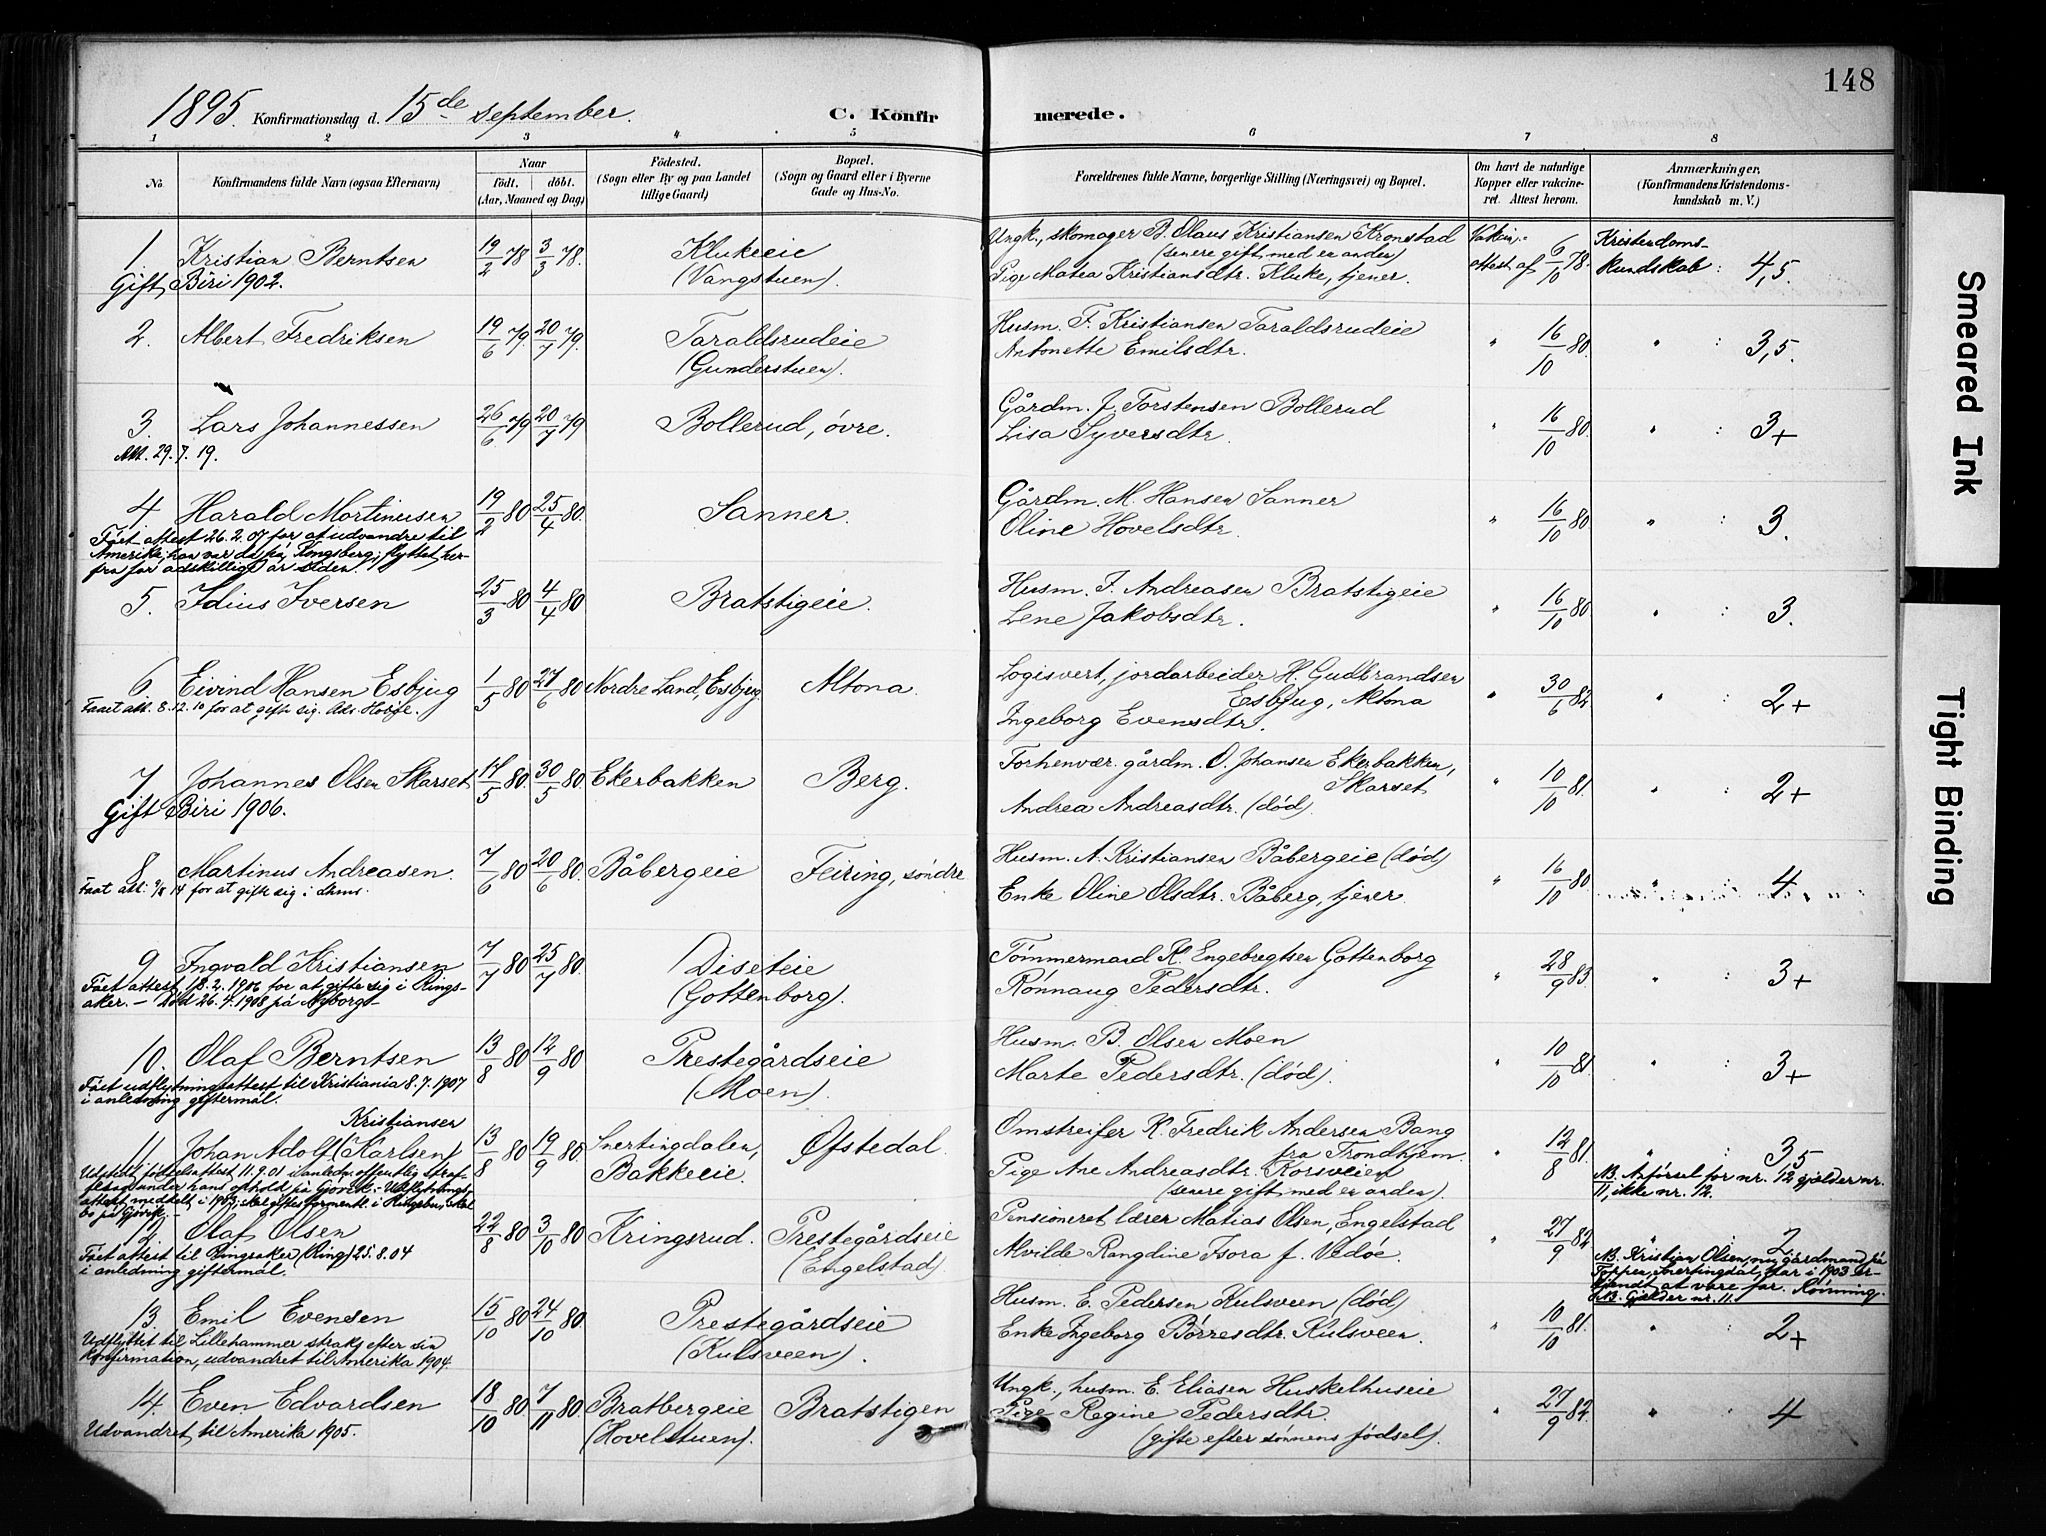 148
1895. Konfirmationsdag d. 15de september.
C. Konfirmerede.
1 2 3 4 5 6 7 8
No. Konfirmandens fulde Navn (ogsaa Efternavn) Naar født. døbt. (Aar, Maaned og Dag) Födested. (Sogn eller By og paa Landet tillige Gaard) Bopæl. (Sogn og Gaard eller i Byerne Gade og Hus-No. Forældrenes fulde Navne, borgerlige Stilling (Næringsvei) og Bopæl. Om havt de naturlige Kopper eller vakcineret. Attest herom. Anmærkninger. (Konfirmandens Kristendomskundskab m. V.)
1. Kristian Berntsen 19/2 78 3/3 78. Klukeeie (Vangstuen). Ungk., skomager B. Olaus Kristiansen Kronstad (senere gift med en anden) Pige Matea Kristiansdtr. Kluke, tjener. Vakcin.- attest af 6/10 78. Kristendoms-kundskab : 4,5.
Gift, Biri 1902.
2. Albert Fredriksen 19/6 79. 20/7 79. Taraldsrudeie (Gunderstuen). Husm. F. Kristiansen Taraldsrudeie Antonette Emilsdtr. " 16/10 80. " : 3,5.
3. Lars Johannessen 26/6 79 20/7 79 Bollerud, övre. Gårdm. J. Torstensen Bollerud Lisa Syversdtr. " 16/10 80. " : 3+
Att. 29.7.19.
4 Harald Martinusen 19/2 80 25/4 80. Sanner. Gårdm. M. Hansen Sanner Oline Hovelsdtr. " 16/10 80 " : 3.
Fået attest 26.2.07 for at udvandre til
Amerika; han var da på Kongsberg; flyttet her-
fra for adskillige år siden.
5. Idius Iversen 25/3 80 4/4 80 Bratstigeie. Husm. I. Andreasen Bratstigeie Lene Jakobsdtr. " 16/10 80 " : 3.
6. Eivind Hansen Esbjug 1/5 80 27/6 80 Nordre Land, Esbjug Altona. Logisvert, jordarbeider H. Gudbrandsen Esbjug, Altona Ingeborg Evensdtr. " 30/6 82 " : 2+
Faaet att. 8.12.10 for at gifte sig.
7. Johannes Olsen Skarset 17/5 80. 30/5 80. Ekerbakken Berg. Forhenvær. gårdm. O. Johansen Ekerbakken, Skarset Andrea Andreasdtr. (död). " 10/10 81. " : 2+
Gift Biri 1906.
8. Martinus Andreasen. 7/6 80 20/6 80. Båbergeie Feiring, söndre Husm. A. Kristiansen Båbergeie (död) Enke Oline Olsdtr. Båberg, tjener. " 16/10 80 " : 4
for at gifte sig i
9 Ingvald Kristiansen 7/7 80 25/7 80. Diseteie (Gottenborg). Tömmermand K. Engebregtsen Gottenborg Rönnaug Pedersdtr. " 28/9 83. " : 3+
Fået attest 18.2.1906 for at gifte sig i Rings-
aker. — Död 26.4.1908 på Nyborg
10. Olaf Berntsen 13/8 80 12/9 80 Prestegårdseie (Moen). Husm. B. Olsen Moen Marte Pedersdtr. (död). " 10/10 81. " : 3+
Fået udflytningsattest til Kristiania 8.7.1907
i anledning giftermål.
Kristiansen
11. Johan Adolf (Karlsen) 13/8 80 19/9 80. Snertingdalen, Bakkeeie. Øfstedal. Omstreifer K. Fredrik Andersen Bang fra Trondhjem. Pige Ane Andreasdtr. Korsveien (senere gift med en anden). " 12/8 81. " 3,5
Udstedt födselsattest 11.9.01 i anledn. offentlig straf-
NB. Anförsel for nr. 12 gjælder nr.
11, ikke nr. 12.
12. Olaf Olsen 22/8 80 3/10 80 Kringsrud. Prestegårdseie (Engelstad) Pensioneret lærer Matias Olsen, Engelstad Alvilde Rangdine Isora f. Vedöe. " 27/9 82 " : 2
Fået attest til Ringsaker (Ring) 25.8.04
i anledning giftermål.
NB. Kristian Olsen, nu gårdmand på
Toppen, Snertingdal, har i 1903 er-
kjendt at være far.
NB. Gjælder nr. 11.
13. Emil Evensen 15/10 80 24/10 80. Prestegårdseie (Kulsveen). Husm. E. Pedersen Kulsveen (död) Enke Ingeborg Börresdtr. Kulsveen. " 10/10 81. " : 2+
Udflyttet til Lillehammer straks efter sin
konfirmation, udvandret til Amerika 1904.
14. Even Edvardsen 18/10 80 7/11 80 Bratbergeie (Hovelstuen). Bratstigen Ungk., husm. E. Eliasen Huskelhuseie Pige Regine Pedersdtr. (gifte efter sönnens födsel). " 27/9 82. " : 4
Udvandret til Amerika 1905.
Smeared Ink
Tight Binding